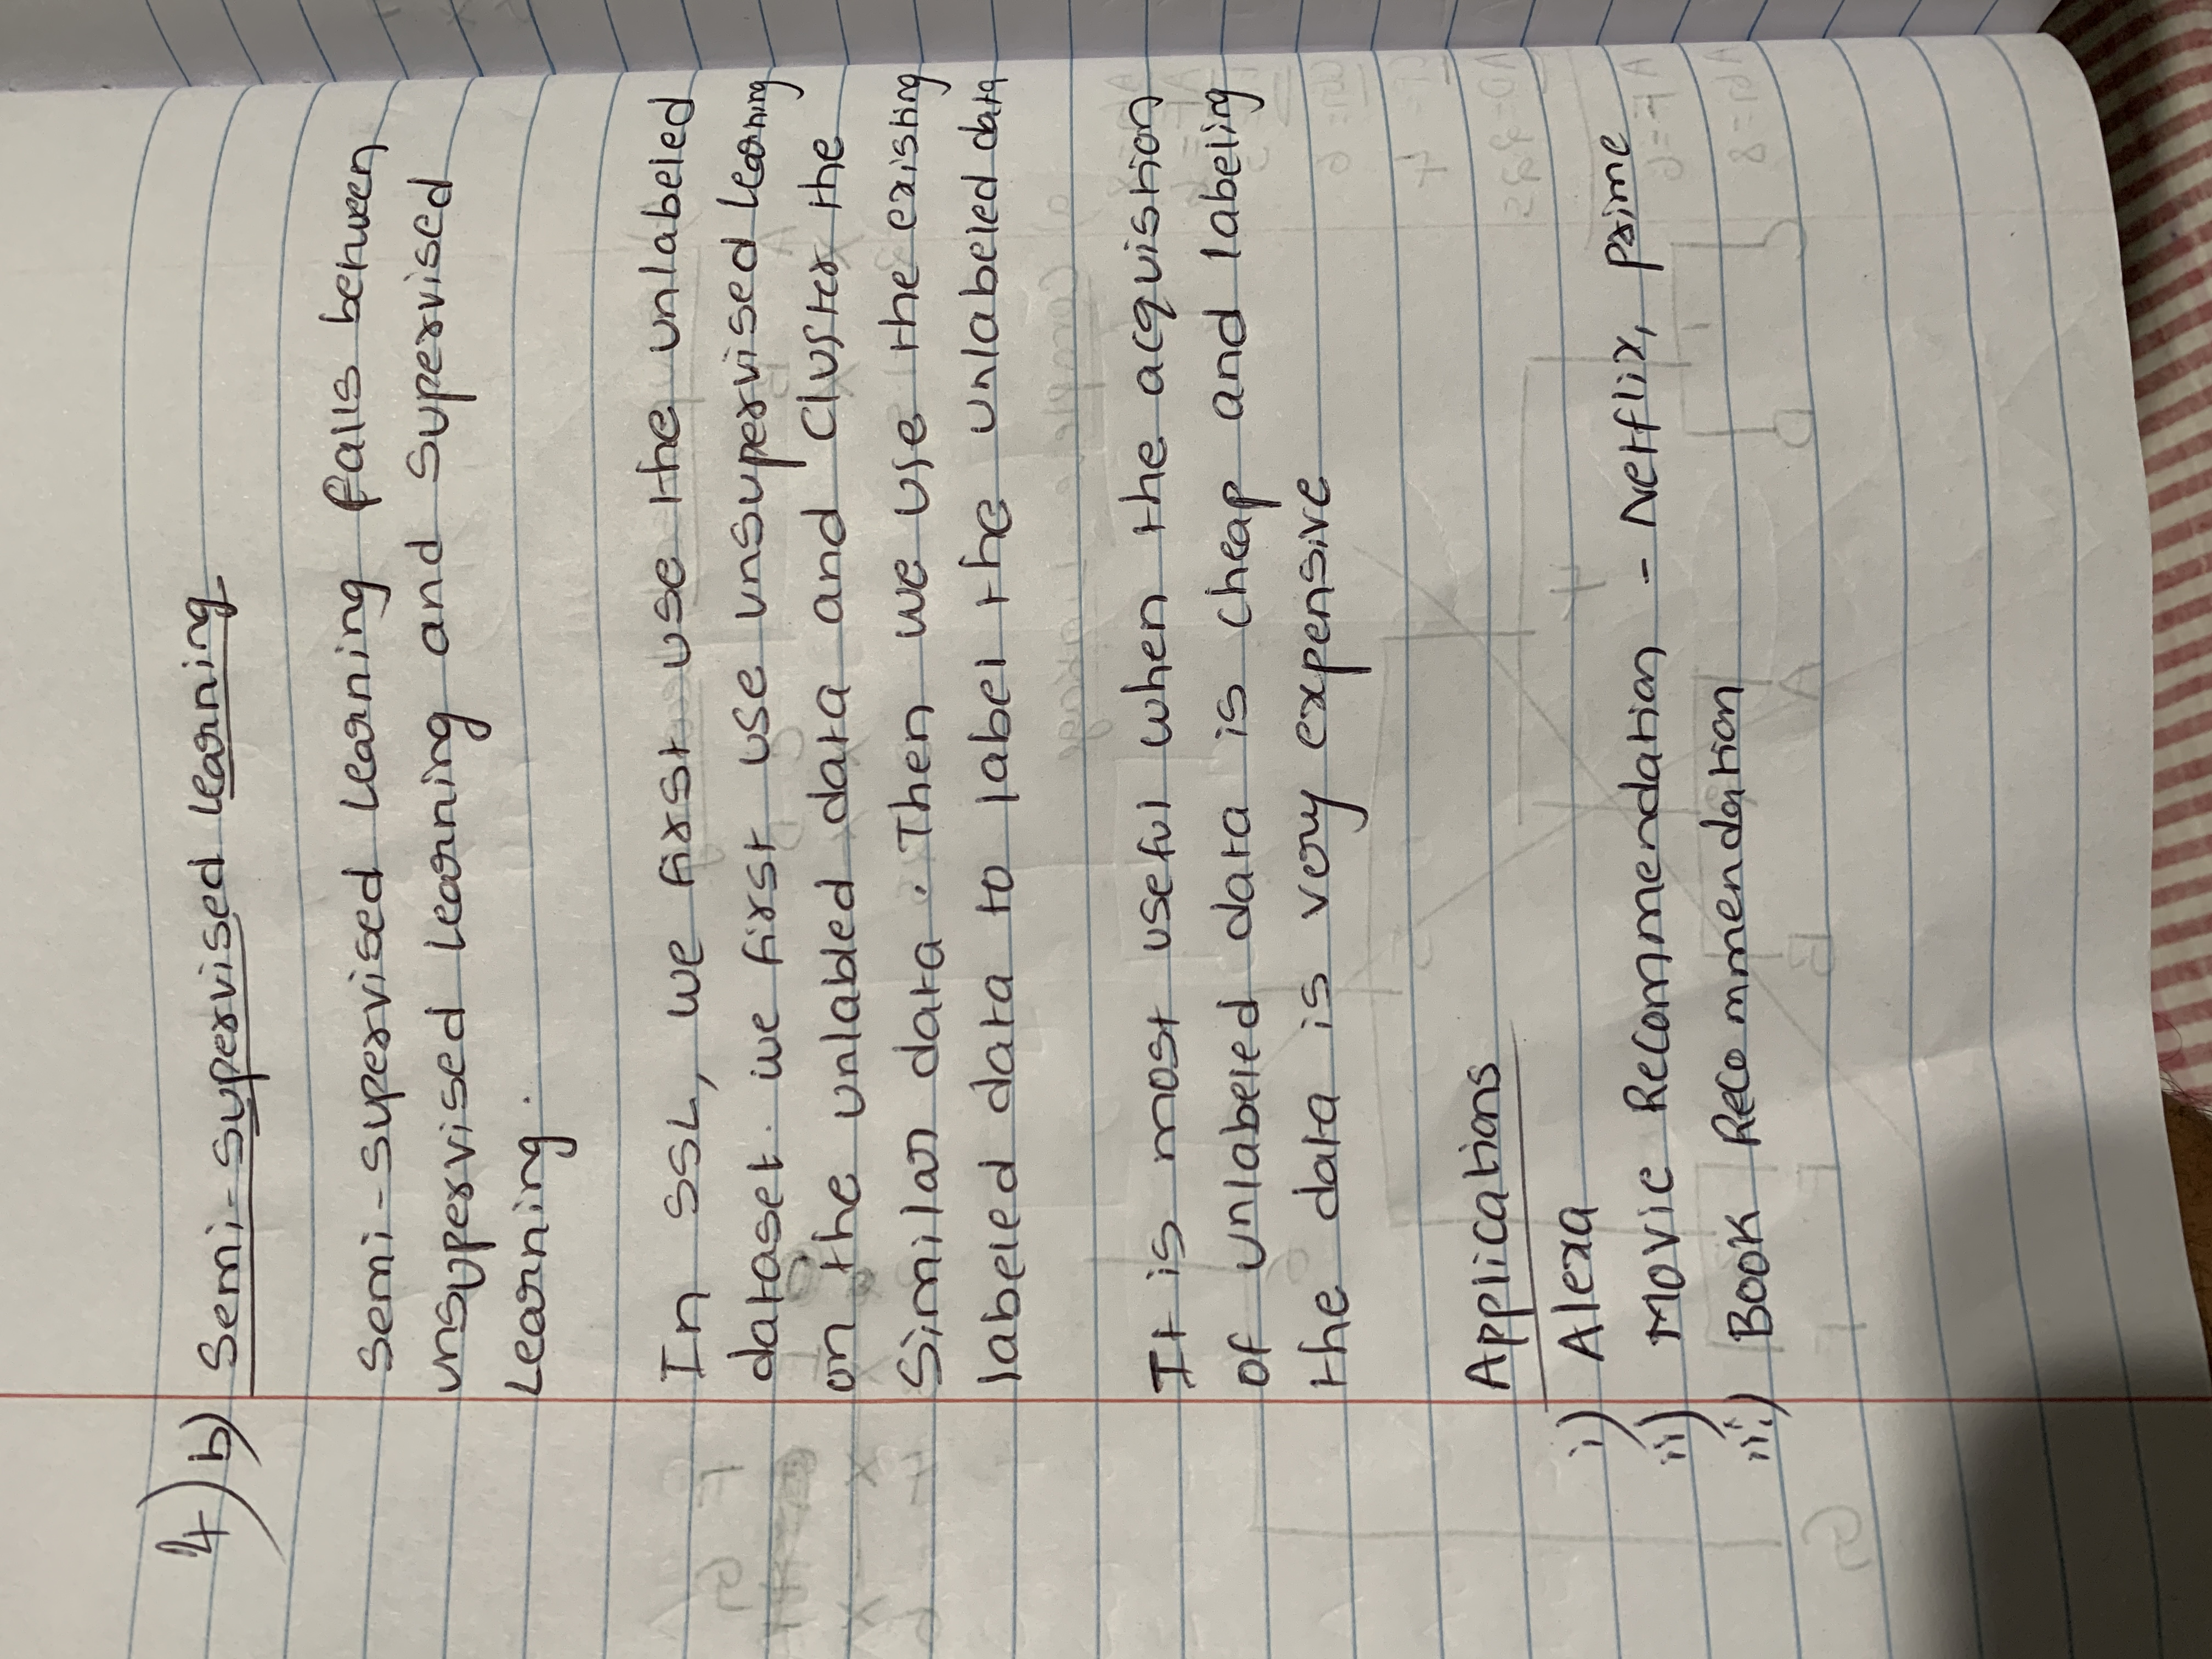 4) b) Semi-Supervised Learning
Semi-supervised Learning falls between
unsupervised Learning and Supervised
Learning.
In SSL, we first use the unlabeled
dataset. we first use unsupervised learning
on the unlabled data and Cluster the
Similar data. Then we use the existing
labeled data to label the unlabeled data
It is most useful when the acquistion
of unlabeled data is cheap and labeling
the data is very expensive
Applications
i) Alexa
ii) Movie Recommendation - Netflix, prime
iii) Book Recommendation